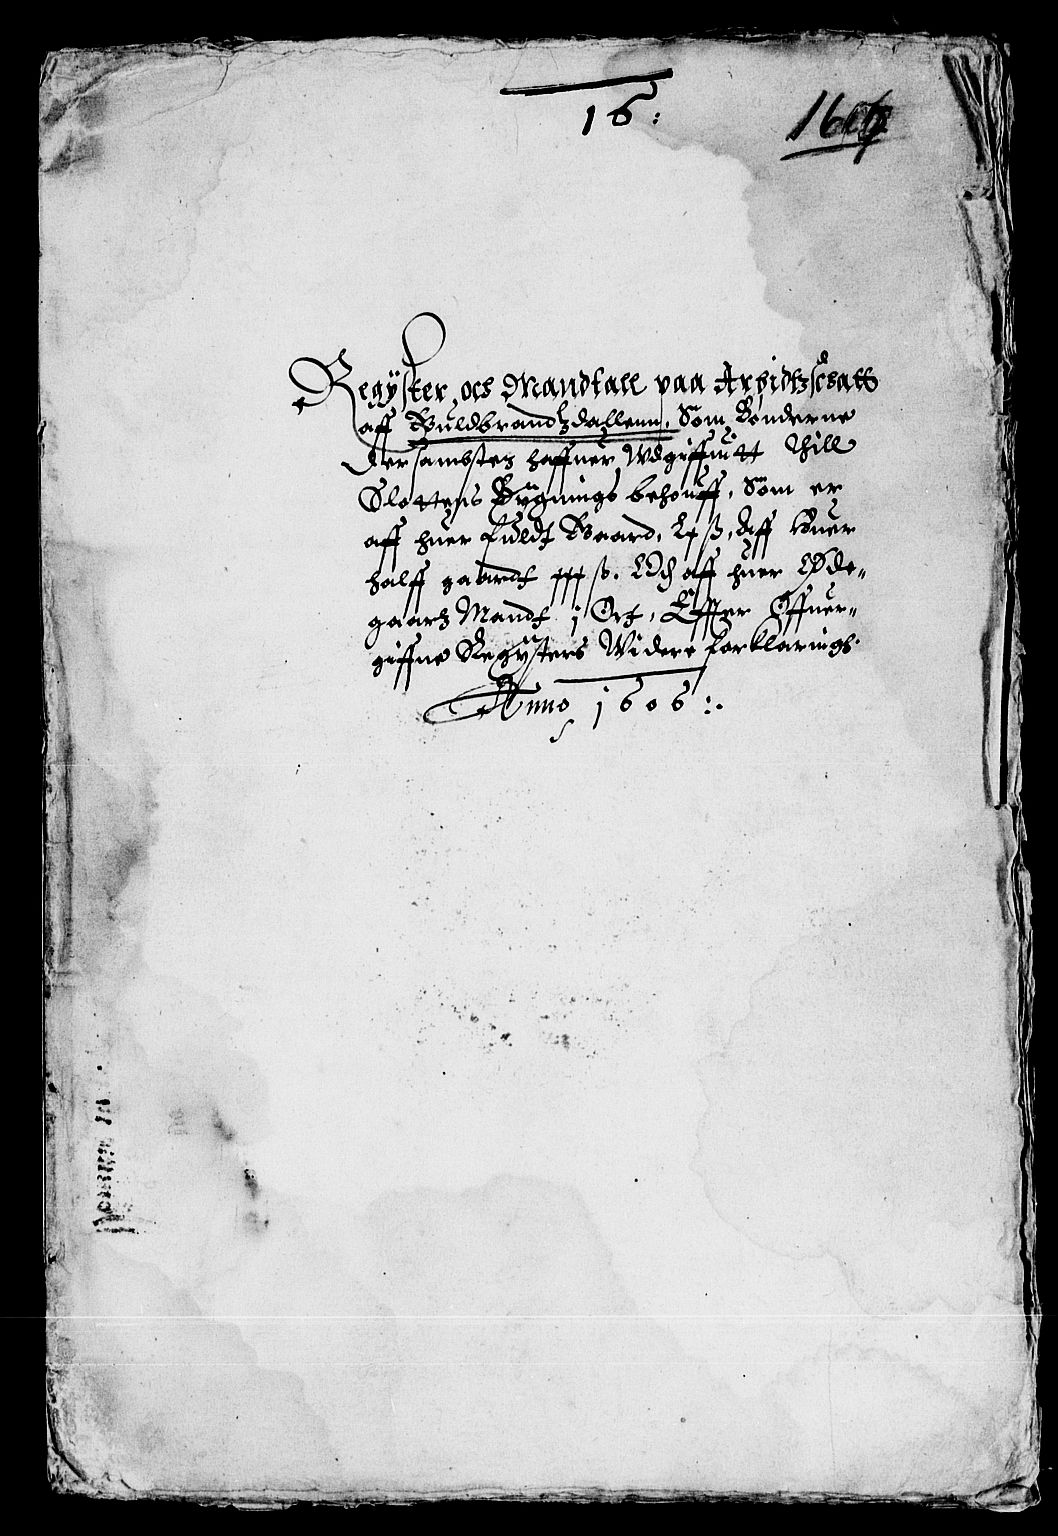 16:
1606
Regÿster och Mandtall paa Arbidtzschatt
aff Guldbrandtzdallenn, Som Bønderne
der sambstes haffuer Wdgiffuitt Thill
Slottens Bÿgnings behouff, Som er
aff huer fuldt Gaard, Lx ß, Aff huer
halff gaardt xxx ß. Och aff huer Øde,,
gaartz Mandt j Ort, Effter Offuer,,
giffne Regÿsters Widere forklarings
Anno 1606:.